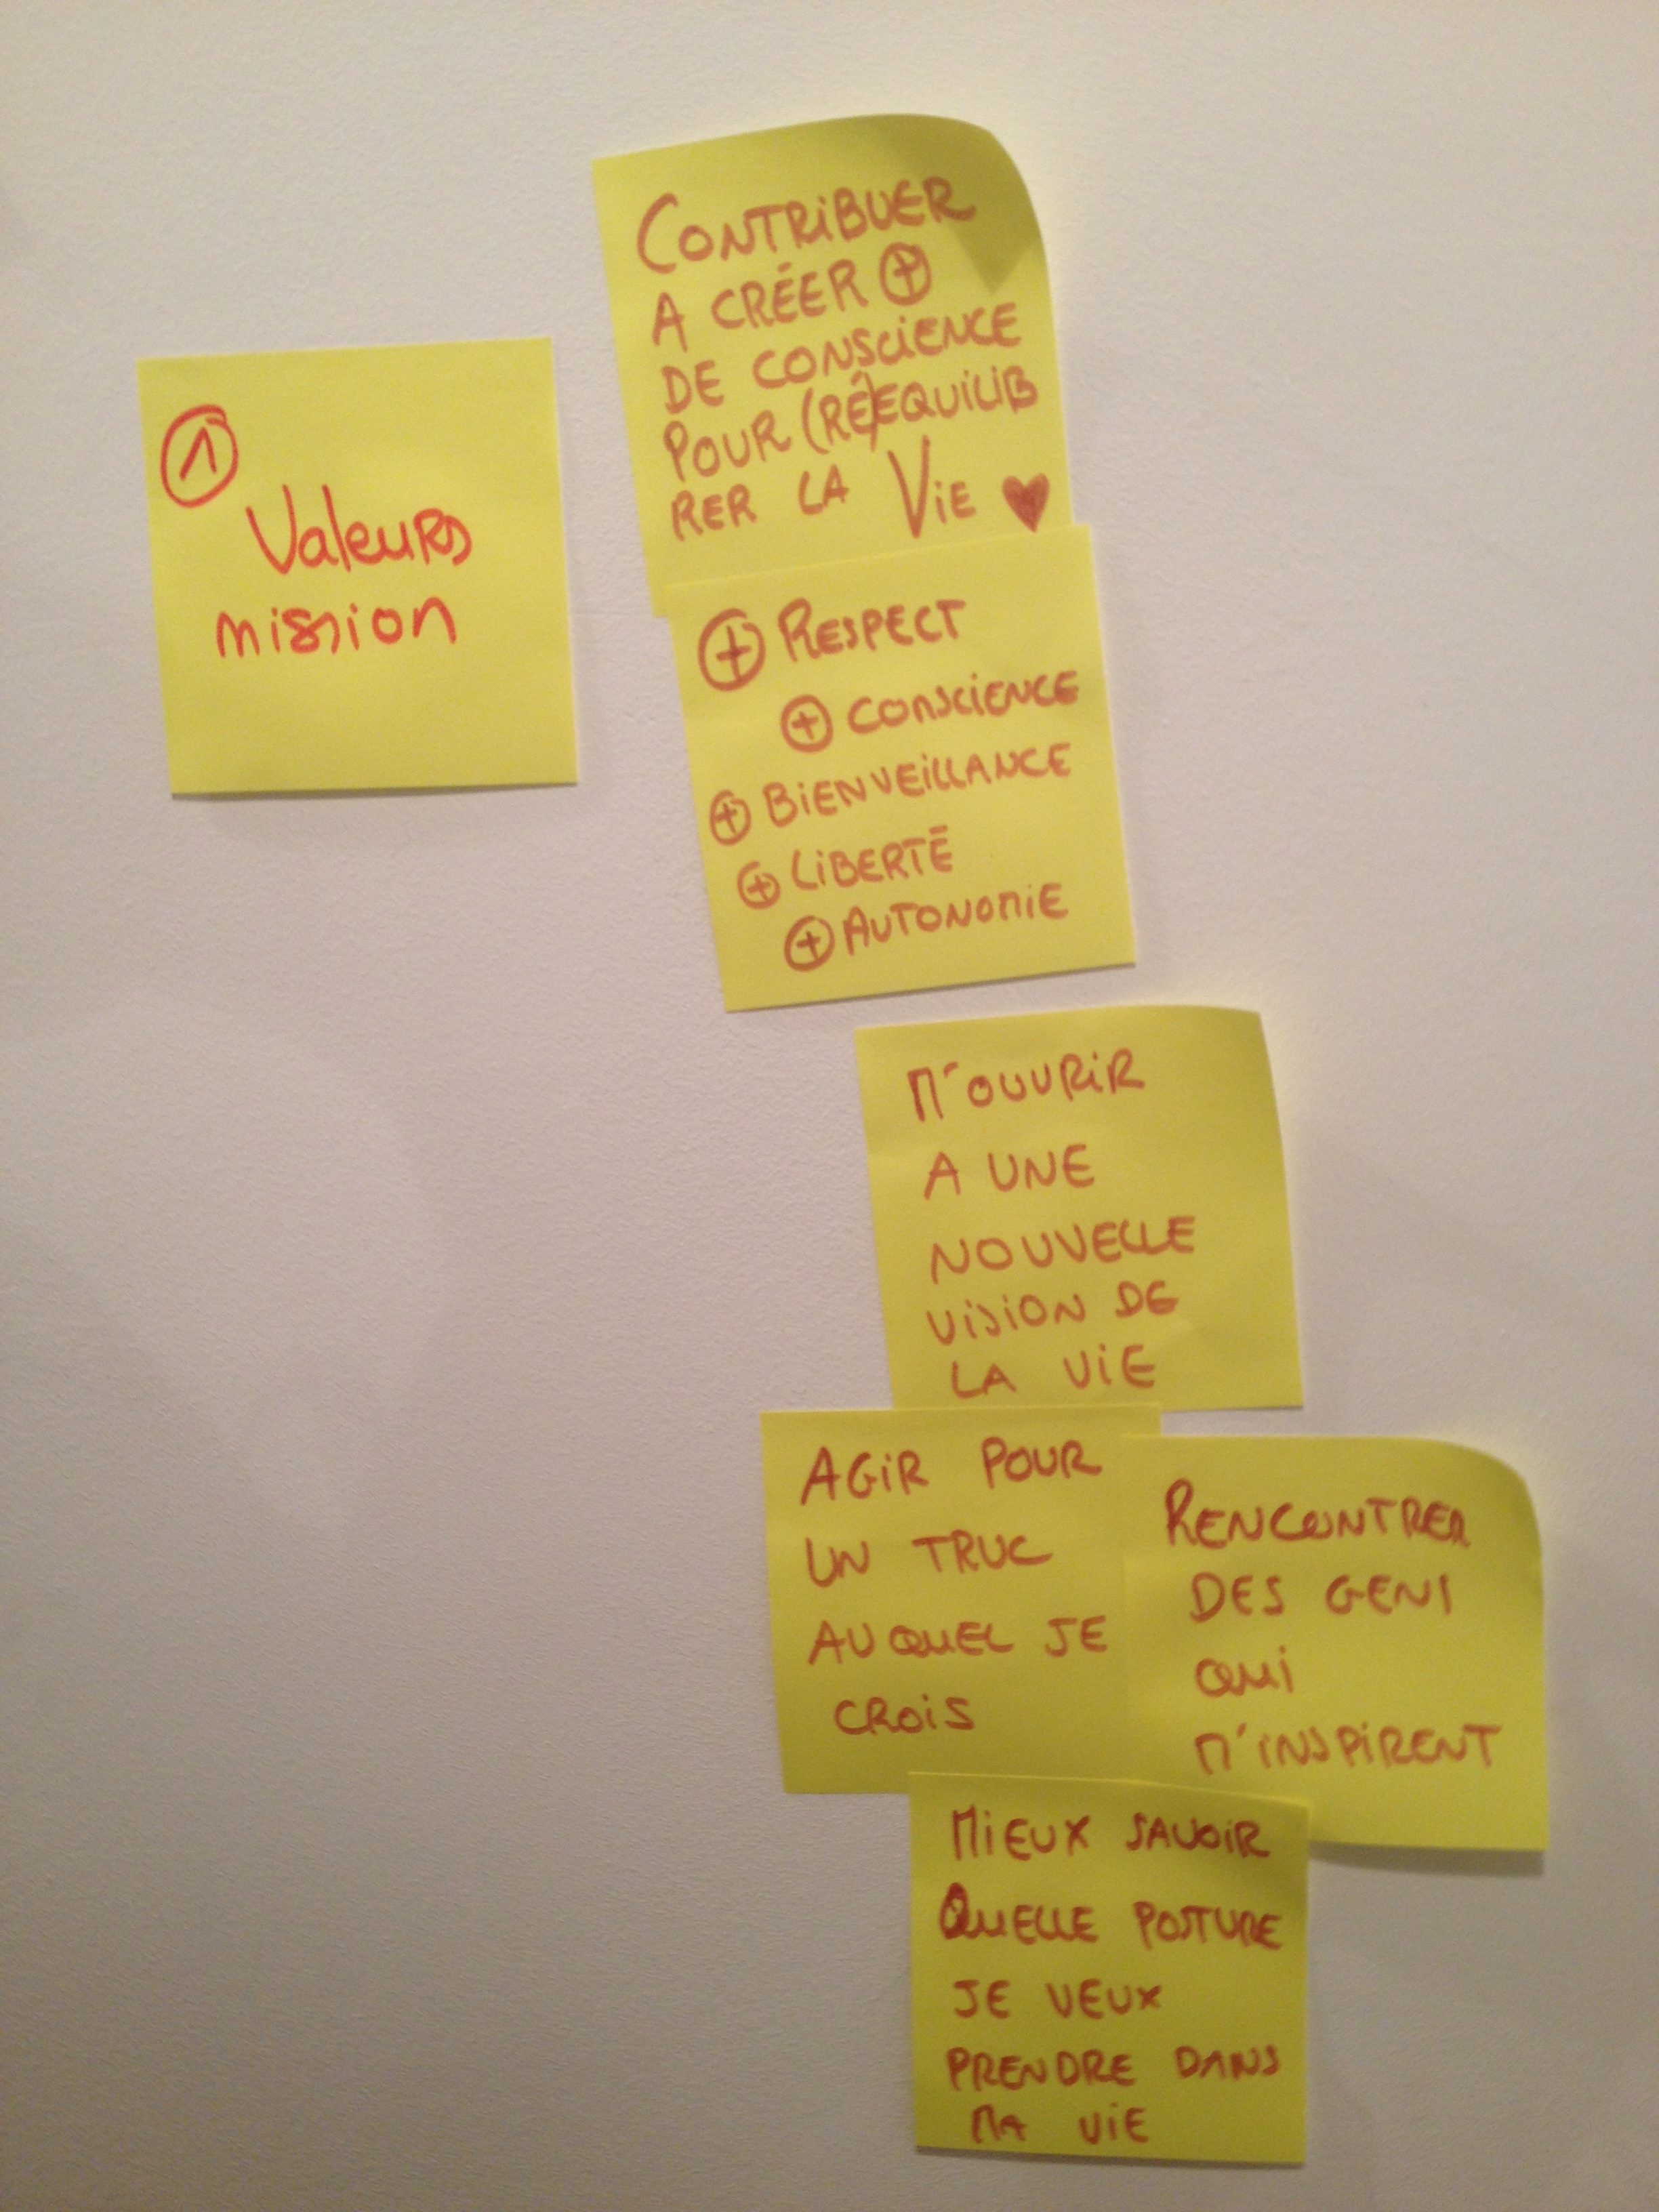 1
Valeurs
mission
CONTRIBUER
A CRÉER +
DE CONSCIENCE
POUR (RÉ)EQUILIB
RER LA VIE ♥
+ RESPECT
+ CONSCIENCE
+ BIENVEILLANCE
+ LIBERTÉ
+ AUTONOMIE
M'OUVRIR
A UNE
NOUVELLE
VISION DE
LA VIE
AGIR POUR
UN TRUC
AUQUEL JE
CROIS
RENCONTRER
DES GENS
QUI
M'INSPIRENT
MIEUX SAVOIR
QUELLE POSTURE
JE VEUX
PRENDRE DANS
MA VIE